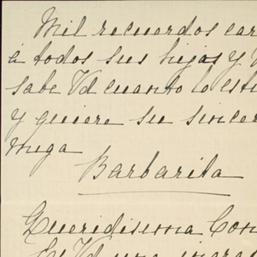 Mil recuerdos car
á todos sus hijas y V
sabe Vd cuanto lo esti
y quiere su sincer
miga
Barbarita
Queridisima Con